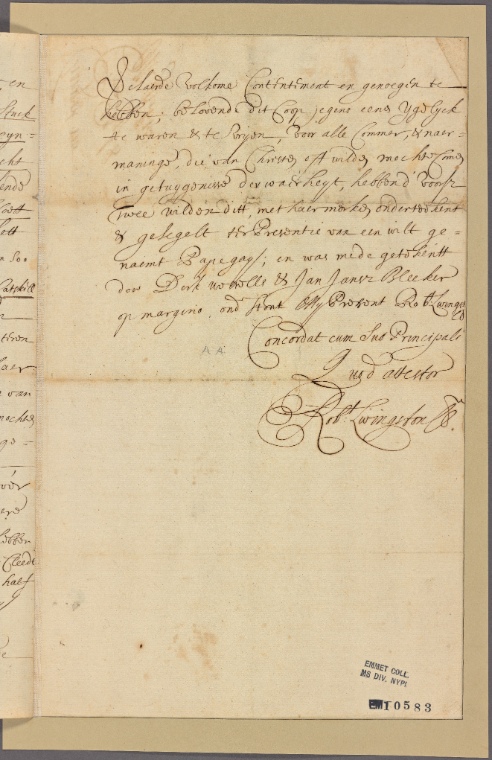 Sclaerde Volkome Contentement en genoegen te
hebben; belovende dit Coop jegens een Ygelyck
te waren & te vryen, voor alle Commer, & naer-
maninge, die van Christen off wilden mochte Comen
in getuygenisse der waerheyt, hebben d' voorsz
Twee wilden ditt, met haer merken onderteekent
& gesegelt ter Presentie van een wilt ge-
naemt Papegay; en was mede geteekentt
door Dirk & Jan Jansz Bleeker
op margine, ond stont My Present Robt Livingston
Concordat cum suo Principali
Quod attestor
Robt Livingston
EMMET COLL.
MS DIV. NYPL
EM 10583
en
Stuck
cht
ende
hett
Catskill
teren
haer
van
mochte
ge-
voor
half